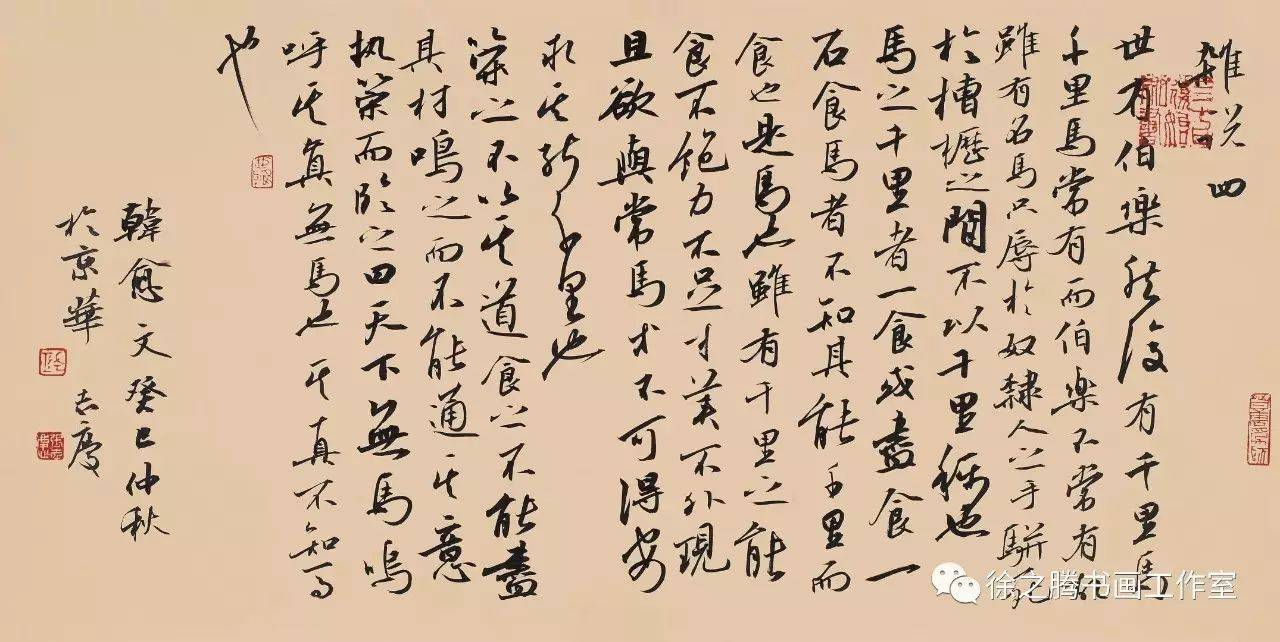 雜说四
世有伯樂然後有千里馬
千里馬常有而伯樂不常有故
雖有名馬只辱於奴隸人之手駢死
於槽櫪之間不以千里稱也
馬之千里者一食或盡食一
石食馬者不知其能千里而
食也是馬也雖有千里之能
食不飽力不足才美不外現
且欲與常馬等不可得安
求其能千里也
策之不以其道食之不能盡
其材鳴之而不能通其意
执策而臨之曰天下無馬嗚
呼其真無馬也其真不知馬
也
韓愈文癸巳仲秋
於京華 志慶
徐之腾书画工作室